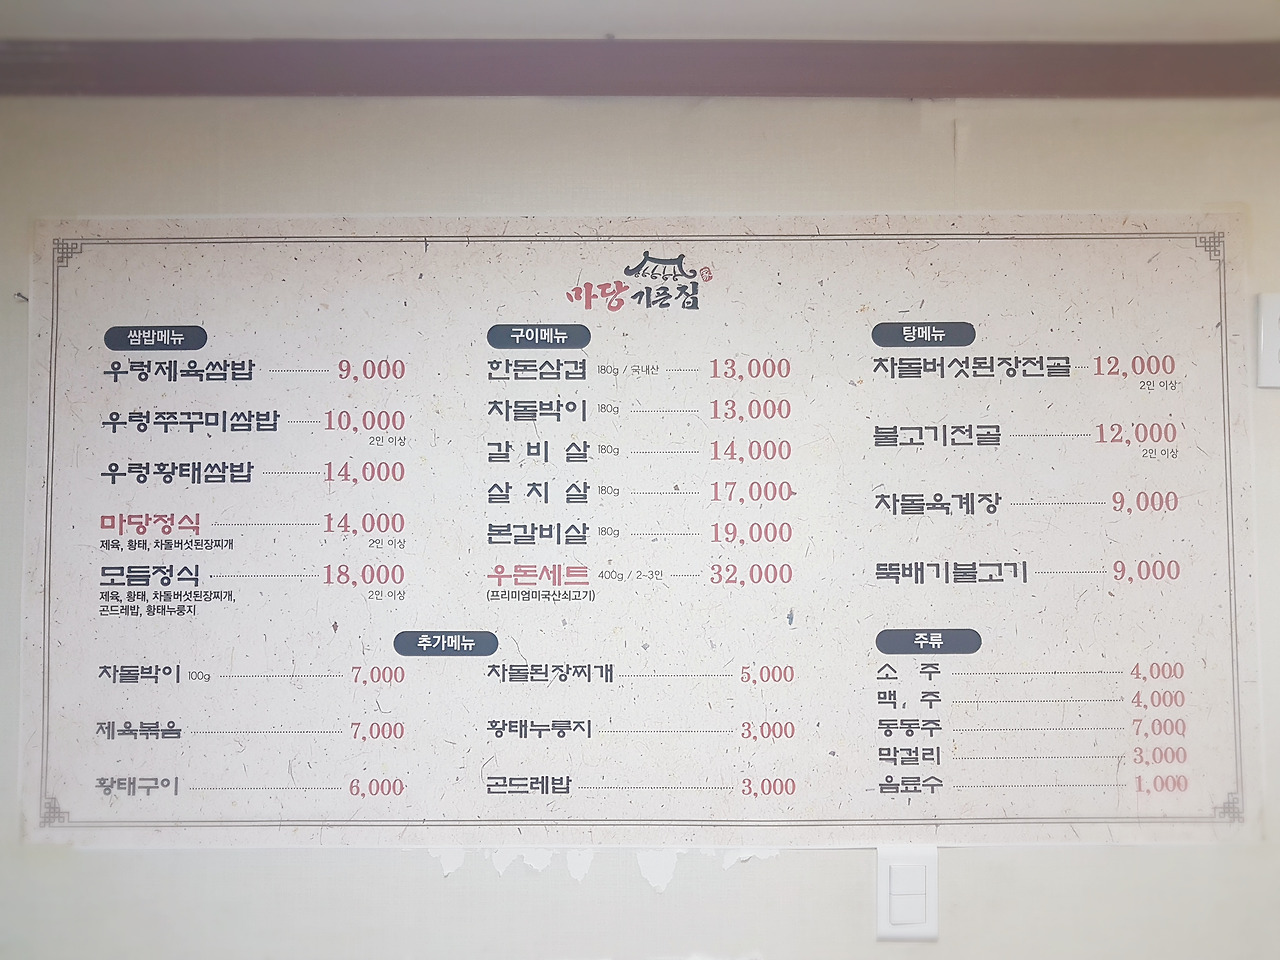 마당 기픈집
쌈밥메뉴
우렁제육쌈밥 9,000
우렁쭈꾸미쌈밥 10,000
2인 이상
우렁황태쌈밥 14,000
마당정식 14,000
제육, 황태, 차돌버섯된장찌개 2인 이상
모듬정식 18,000
제육, 황태, 차돌버섯된장찌개, 2인 이상
곤드레밥, 황태누룽지
구이메뉴
한돈삼겹 180g / 국내산 13,000
차돌박이 180g 13,000
갈 비 살 180g 14,000
살 치 살 180g 17,000
본갈비살 180g 19,000
우돈세트 400g / 2~3인 32,000
(프리미엄미국산쇠고기)
탕메뉴
차돌버섯된장전골 12,000
2인 이상
불고기전골 12,000
2인 이상
차돌육계장 9,000
뚝배기불고기 9,000
추가메뉴
차돌박이 100g 7,000
제육볶음 7,000
황태구이 6,000
차돌된장찌개 5,000
황태누룽지 3,000
곤드레밥 3,000
주류
소 주 4,000
맥 주 4,000
동동주 7,000
막걸리 3,000
음료수 1,000